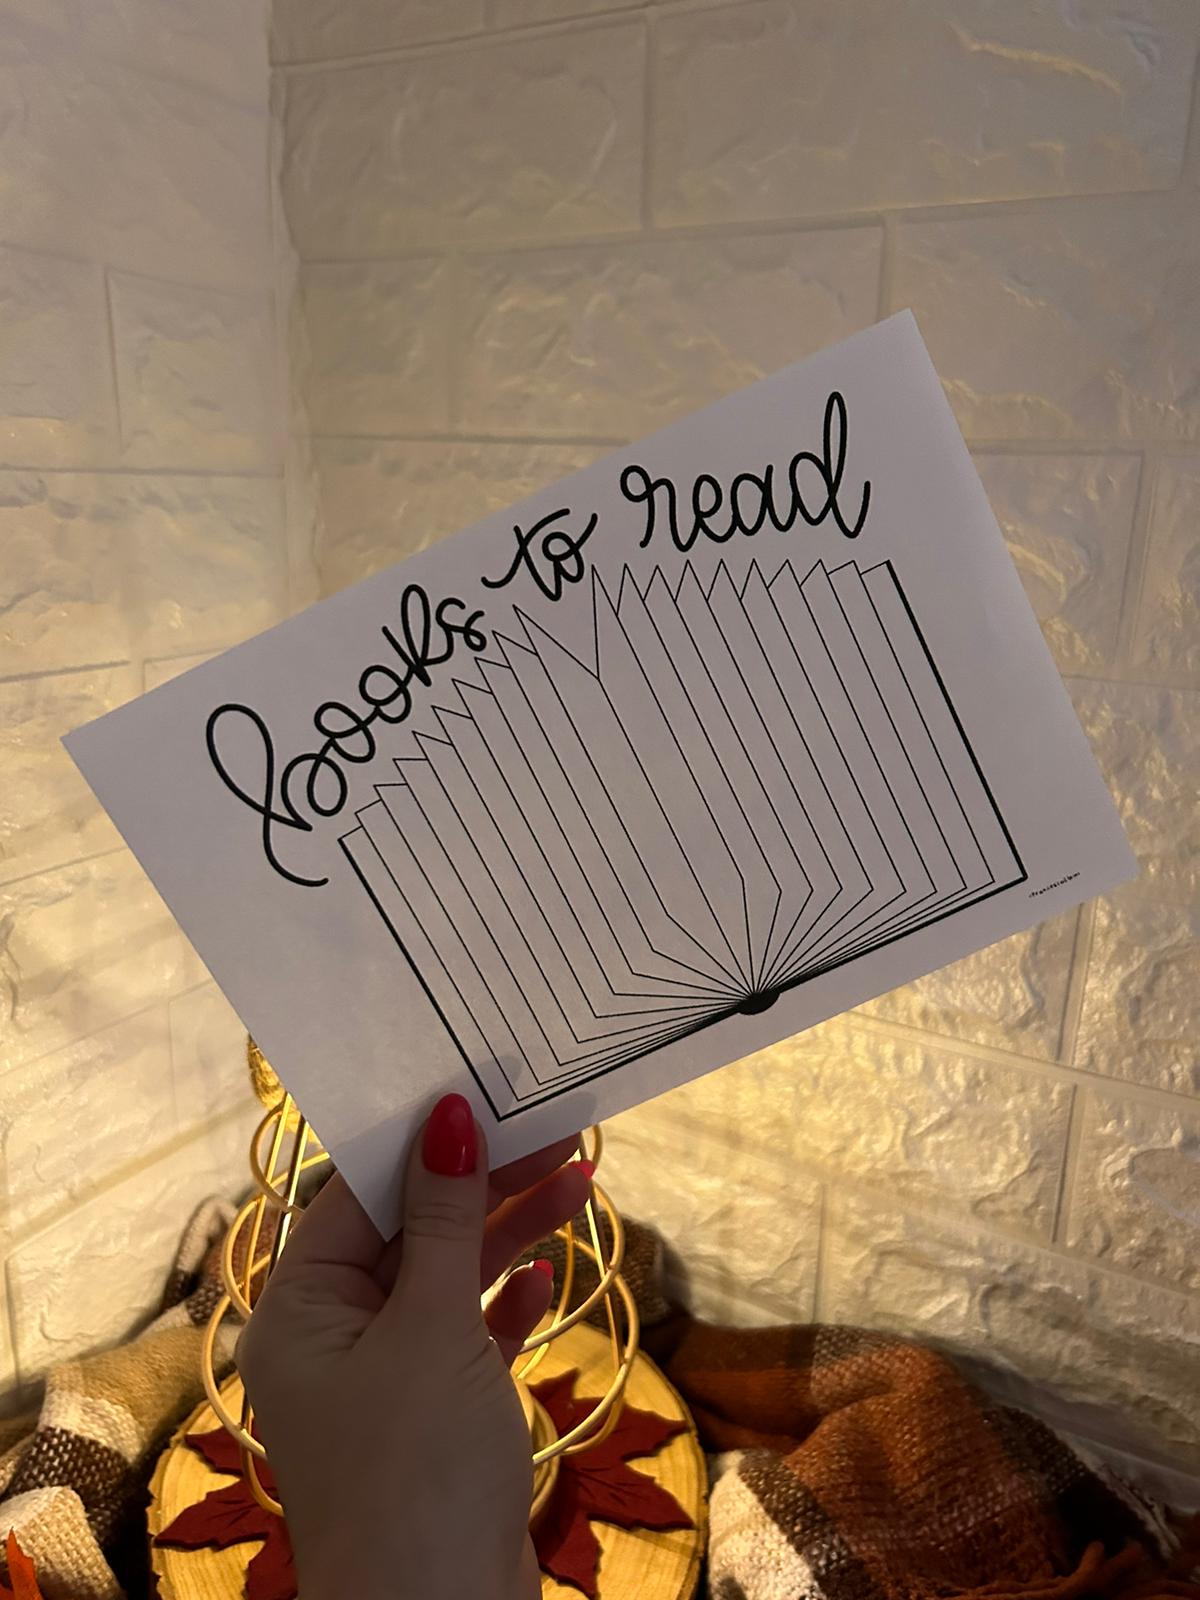 books to read